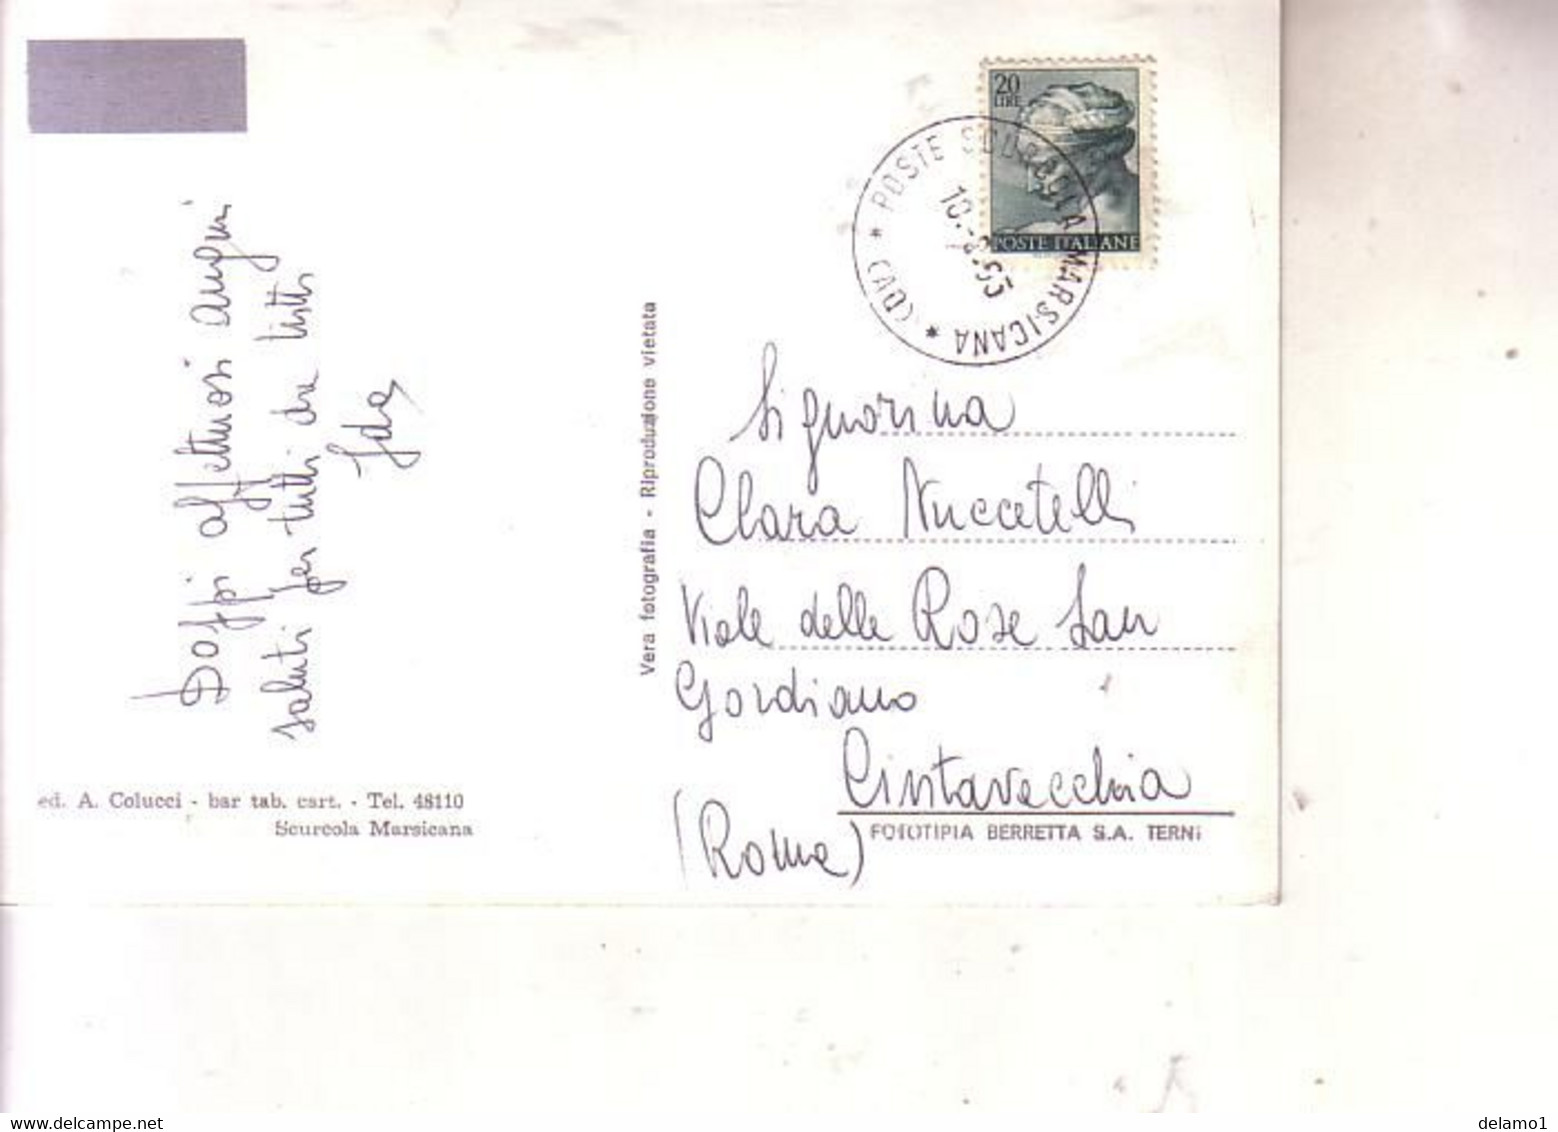 20
LIRE
POSTE ITALIANE
* POSTE SCURCOLA MARSICANA * (AQ)
Doppi affettuosi auguri
saluti per tutti da tutti
Ida
Vera fotografia - Riproduzione vietata
Signorina
Clara Nuccetelli
Viale delle Rose San
Gordiano
Civitavecchia
(Roma)
ed. A. Colucci - bar tab. cart. - Tel. 48110
Scurcola Marsicana
FOTOTIPIA BERRETTA S.A. TERNI
delcampe.net
delamo1